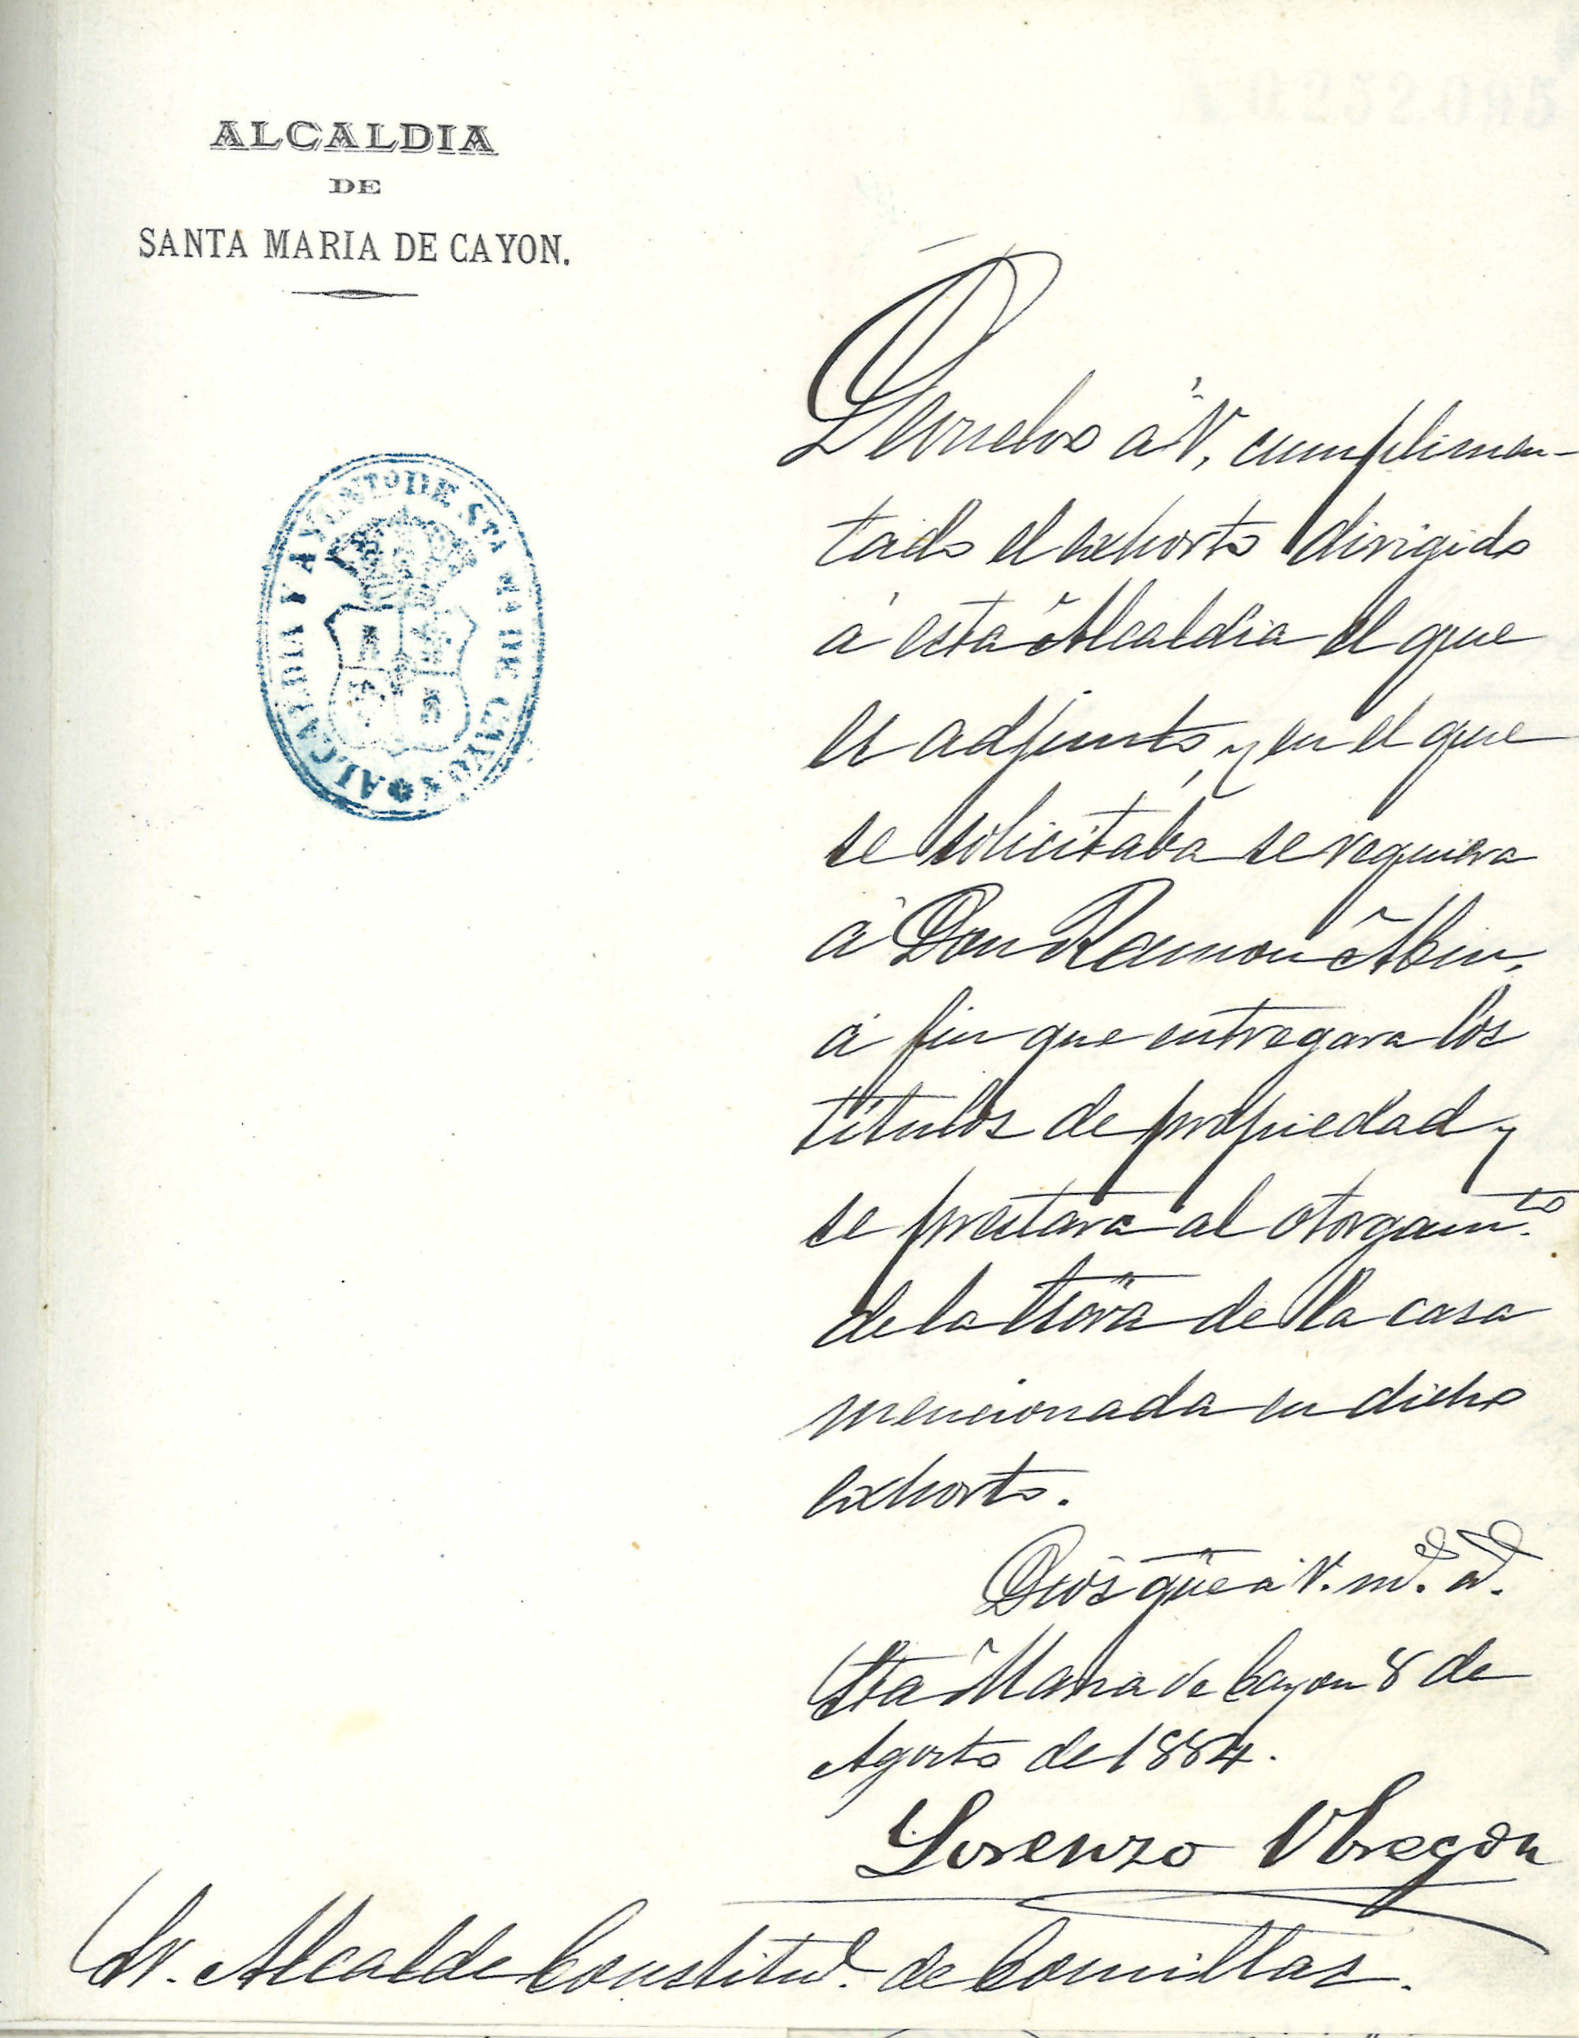 ALCALDIA
DE
SANTA MARIA DE CAYON.
ALCALDIA Y AYUNTO DE STA MA DE CAYON
Devuelvo á V, cumplimen-
tado el exhorto dirigido
á esta Alcaldia el que
es adjunto, y en el que
se solicitaba se requiera
á Don Ramon Abin,
á fin que entregara los
títulos de propiedad y
se prestara al otorgam.to
de la Esora de la casa
mencionada en dicho
exhorto.
Dios gue á V. m.s a.s
Sta Maria de Cayon 8 de
Agosto de 1884.
Lorenzo Obregon
Sr. Alcalde Constitul. de Comillas.